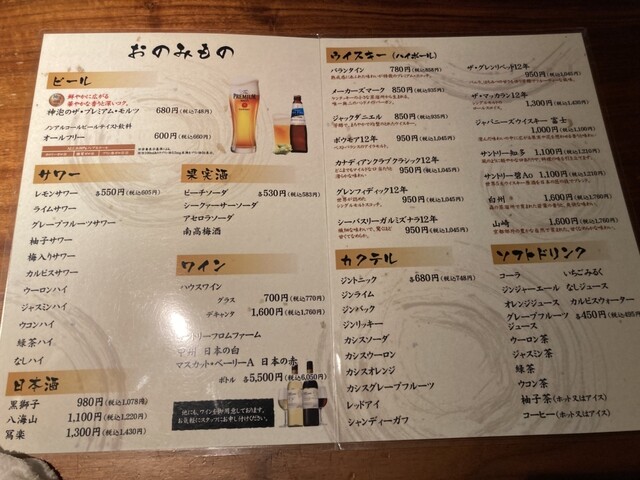 おのみもの
ビール
鮮やかに広がる
華やかな香りと深いコク。
神泡のザ・プレミアム・モルツ 680円(税込748円)
ノンアルコールビールテイスト飲料
オールフリー 600円(税込660円)
PREMIUM
サワー
レモンサワー 各550円(税込605円)
ライムサワー
グレープフルーツサワー
柚子サワー
梅入りサワー
カルピスサワー
ウーロンハイ
ジャスミンハイ
ウコンハイ
緑茶ハイ
なしハイ
日本酒
黒獅子 980円(税込1,078円)
八海山 1,100円(税込1,220円)
冩楽 1,300円(税込1,430円)
果実酒
ピーチソーダ 各530円(税込583円)
シークァーサーソーダ
アセロラソーダ
南高梅酒
ワイン
ハウスワイン
グラス 700円(税込770円)
デキャンタ 1,600円(税込1,760円)
トリーフロムファーム
甲州 日本の白
マスカット・ベーリーA 日本の赤
ボトル 各5,500円(税込6,050円)
他にも、ワインを御用意しております。
お気軽にスタッフにお申し付けください。
ウイスキー (ハイボール)
バランタイン 780円(税込858円)
メーカーズマーク 850円(税込935円)
ジャックダニエル 850円(税込935円)
ボウモア12年 950円(税込1,045円)
カナディアンクラブクラシック12年
950円(税込1,045円)
グレンフィディック12年
世界が認めた
シングルモルトスコッチ。 950円(税込1,045円)
シーバスリーガルミズナラ12年
950円(税込1,045円)
ザ・グレンリベット12年
950円(税込1,045円)
ザ・マッカラン12年
1,300円(税込1,430円)
ジャパニーズウイスキー 富士
1,000円(税込1,100円)
サントリー知多 1,100円(税込1,210円)
サントリー碧Ao 1,100円(税込1,210円)
白州 1,600円(税込1,760円)
山崎 1,600円(税込1,760円)
カクテル
ジントニック 各680円(税込748円)
ジンライム
ジンバック
ジンリッキー
カシスソーダ
カシスウーロン
カシスオレンジ
カシスグレープフルーツ
レッドアイ
シャンディーガフ
ソフトドリンク
コーラ いちごみるく
ジンジャーエール なしジュース
オレンジジュース カルピスウォーター
グレープフルーツ 各450円(税込495円)
ジュース
ウーロン茶
ジャスミン茶
緑茶
ウコン茶
柚子茶(ホット又はアイス)
コーヒー(ホット又はアイス)